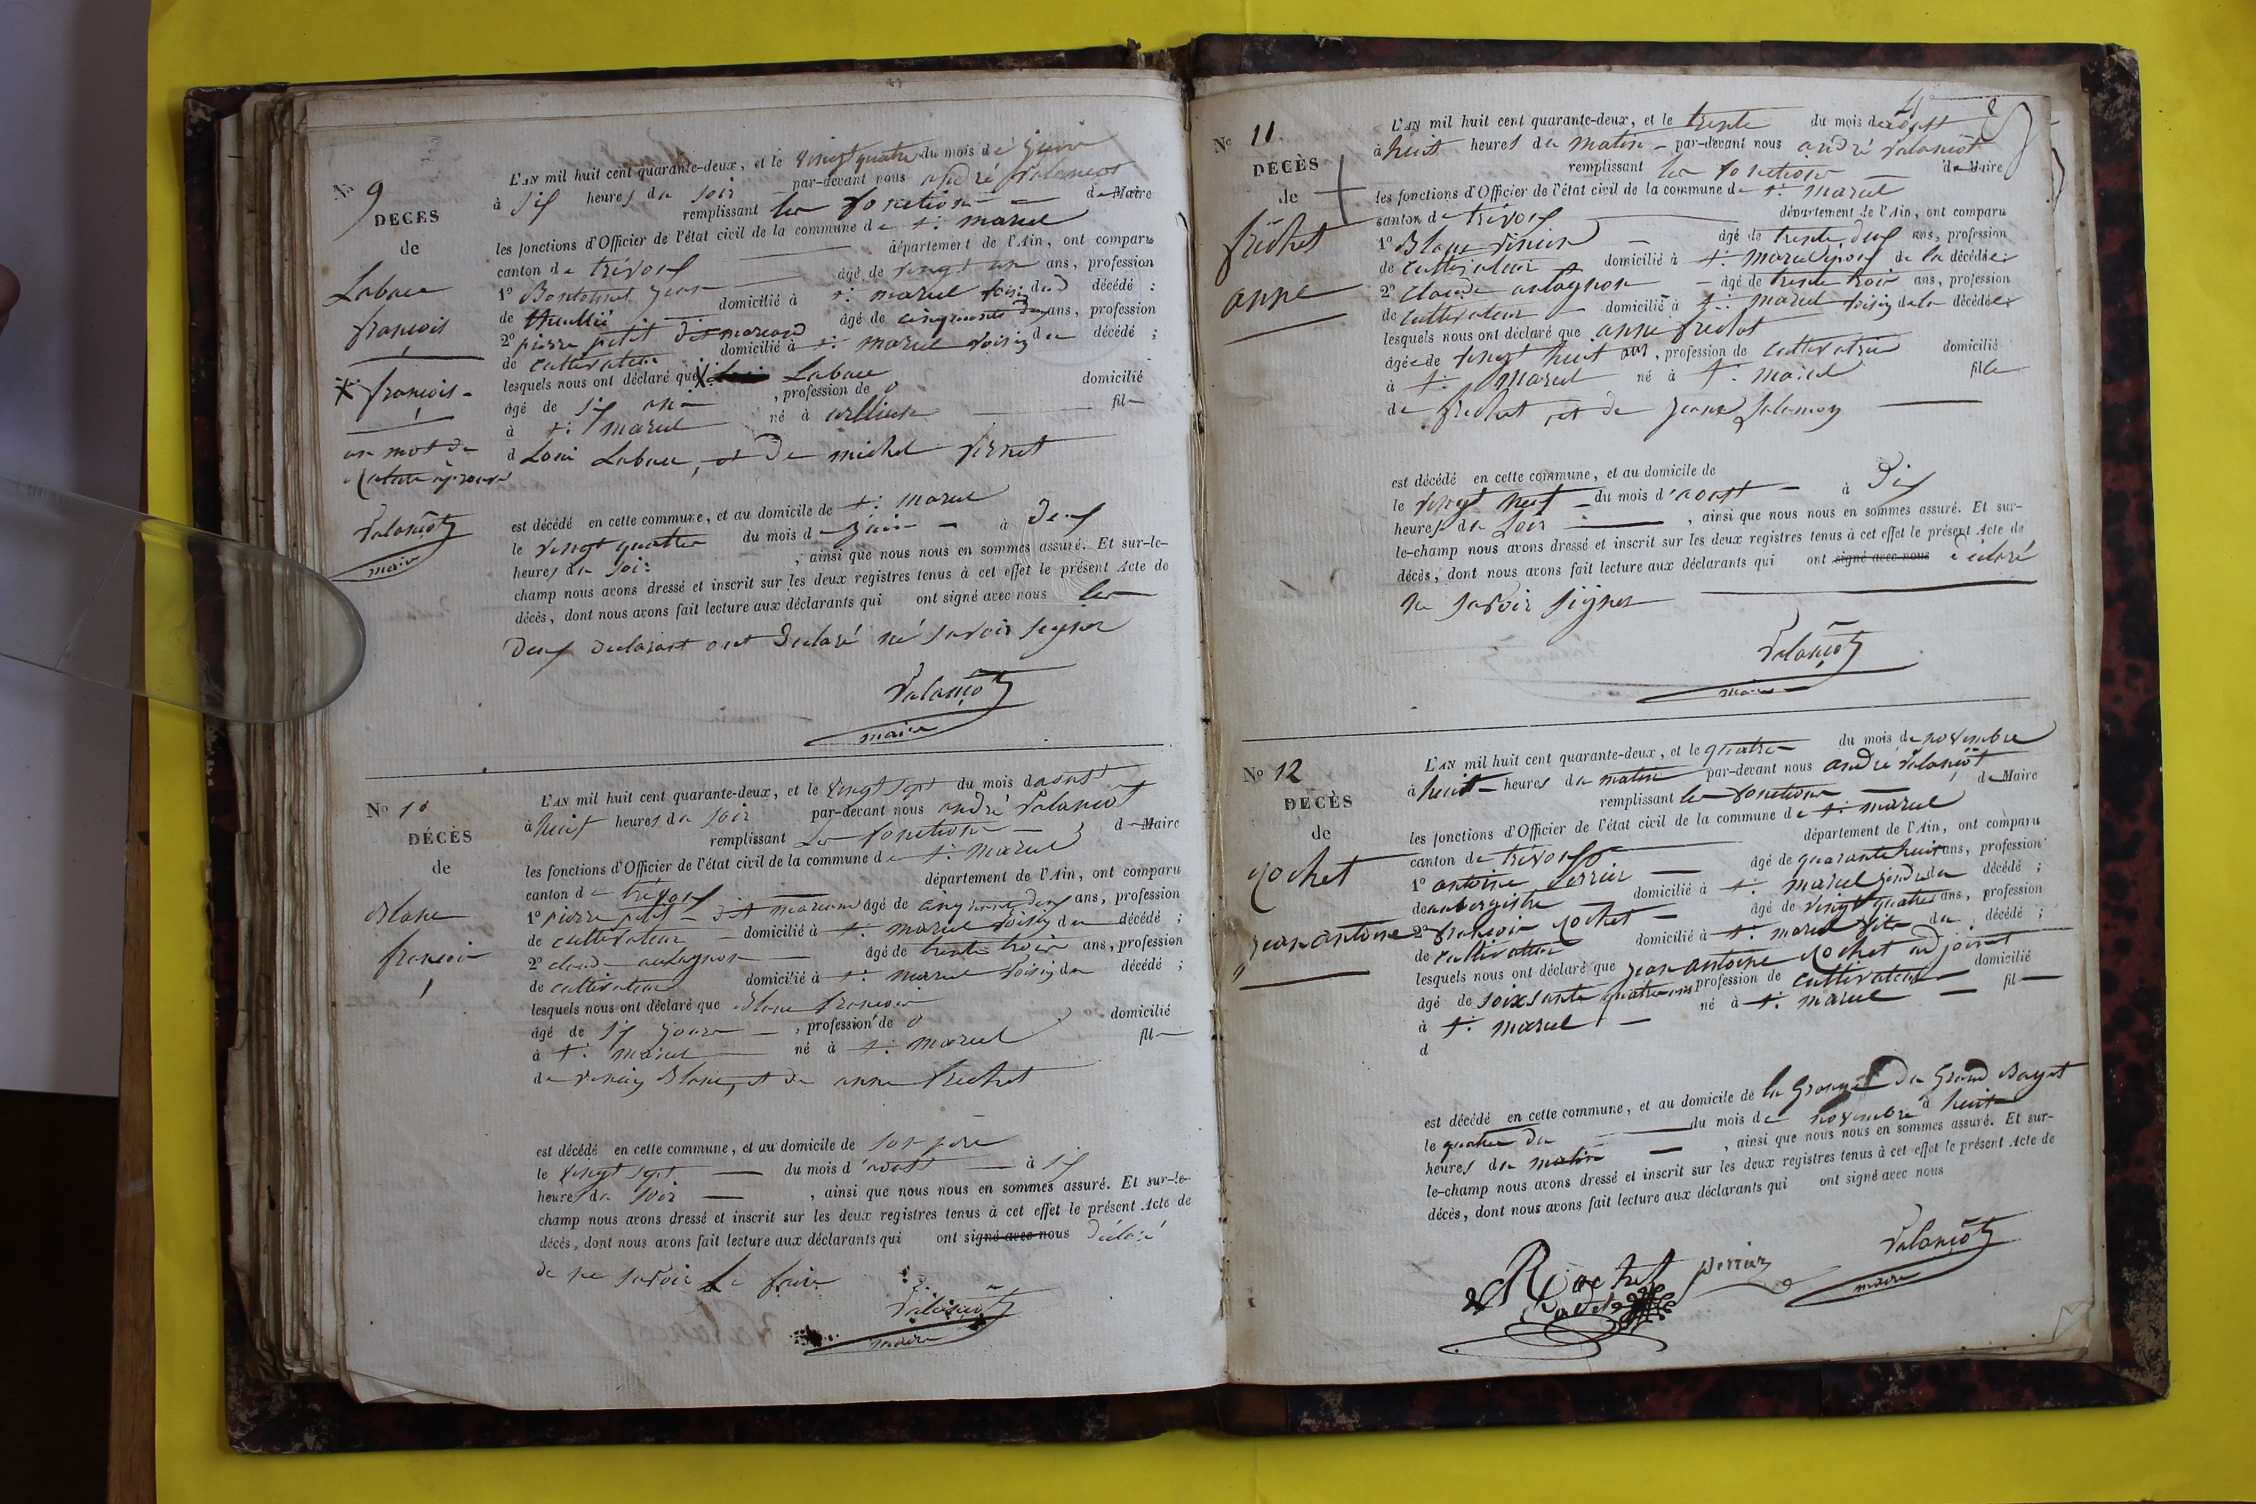 No 9
DECES
de
Labaue
françois
X françois -
un mot de
rature aprouvé
Valançot
maire
L'AN mil huit cent quarante-deux, et le vingt quatre du mois de juin
à six heures du soir par-devant nous andré Valançot
remplissant les fonction de Maire
les fonctions d'Officier de l'état civil de la commune de st marcel
canton de trévoux département de l'Ain, ont comparu
1° jean âgé de vingt un ans, profession
de domicilié à st marcel décédé ;
2° pierre petit dit marcand âgé de cinquante deux ans, profession
de cultivateur domicilié à st marcel voisin du décédé ;
lesquels nous ont déclaré que X Labaue
âgé de six ans , profession de 0 domicilié
à st marcel né à fil
d Loui Labaue, et de michel Vernet
est décédé en cette commune, et au domicile de st marcel
le vingt quatre du mois de juin à deux
heures du soir , ainsi que nous nous en sommes assuré. Et sur-le-
champ nous avons dressé et inscrit sur les deux registres tenus à cet effet le présent Acte de
décès, dont nous avons fait lecture aux déclarants qui ont signé avec nous les
deux declarant ont declaré né savoir signer
Valançot
maire
No 10
DÉCÈS
de
Blanc
françois
L'AN mil huit cent quarante-deux, et le vingt sept du mois daoust
à huit heures du soir par-devant nous andré Valançot
remplissant les fonction de Maire
les fonctions d'Officier de l'état civil de la commune de st marcel
canton de trévoux département de l'Ain, ont comparu
1° pierre petit dit marcand âgé de cinquante deux ans, profession
de cultivateur domicilié à st marcel voisin du décédé ;
2° claude autagnon âgé de trente trois ans, profession
de cultivateur domicilié à st marcel voisin du décédé ;
lesquels nous ont déclaré que Blanc françois
âgé de six jours , profession de 0 domicilié
à st marcel né à st marcel fil
de Blanc, et de anne frechet
est décédé en cette commune, et au domicile de son père
le vingt sept du mois d'aoust à six
heures du soir , ainsi que nous nous en sommes assuré. Et sur-le-
champ nous avons dressé et inscrit sur les deux registres tenus à cet effet le présent Acte de
décès, dont nous avons fait lecture aux déclarants qui ont signé avec nous déclaré
de ne savoir le faire
Valançot
maire
No 11
DÉCÈS
de
frechet
anne
L'AN mil huit cent quarante-deux, et le trente du mois daoust
à huit heures du matin par-devant nous andré Valançot
remplissant les fonction de Maire
les fonctions d'Officier de l'état civil de la commune de st marcel
canton de trévoux département de l'Ain, ont comparu
1° Blanc âgé de trente deux ans, profession
de cultivateur domicilié à st marcel epoux de la décédée
2° claude autagnon âgé de trente trois ans, profession
de cultivateur domicilié à st marcel voisin de la décédée
lesquels nous ont déclaré que anne frechet
âgée de vingt huit ans, profession de cultivatrice domicilié
à st marcel né à st marcel fille
de frechet et de jeane Salomon
est décédé en cette commune, et au domicile de
le vingt neuf du mois d'aoust à dix
heures du soir , ainsi que nous nous en sommes assuré. Et sur-
le-champ nous avons dressé et inscrit sur les deux registres tenus à cet effet le présent Acte de
décès, dont nous avons fait lecture aux déclarants qui ont signé avec nous déclaré
ne savoir signer
Valançot
maire
No 12
DÉCÈS
de
Rochet
jean antoine
L'AN mil huit cent quarante-deux, et le quatre du mois de novembre
à huit heures du matin par-devant nous andré Valançot
remplissant les fonction de Maire
les fonctions d'Officier de l'état civil de la commune de st marcel
canton de trévoux département de l'Ain, ont comparu
1° antoine Perrier âgé de quarante huit ans, profession
de aubergiste domicilié à st marcel gendre du décédé ;
2° françois Rochet âgé de vingt quatre ans, profession
de cultivateur domicilié à st marcel fils du décédé ;
lesquels nous ont déclaré que jean antoine Rochet adjoint
âgé de soixsante quatre ans profession de cultivateur domicilié
à st marcel né à st marcel fil
d
est décédé en cette commune, et au domicile de la Grange du Grand Bayet
le quatre du du mois de novembre à huit
heures du matin , ainsi que nous nous en sommes assuré. Et sur-
le-champ nous avons dressé et inscrit sur les deux registres tenus à cet effet le présent Acte de
décès, dont nous avons fait lecture aux déclarants qui ont signé avec nous
Rochet perrier Valançot
Cadet maire